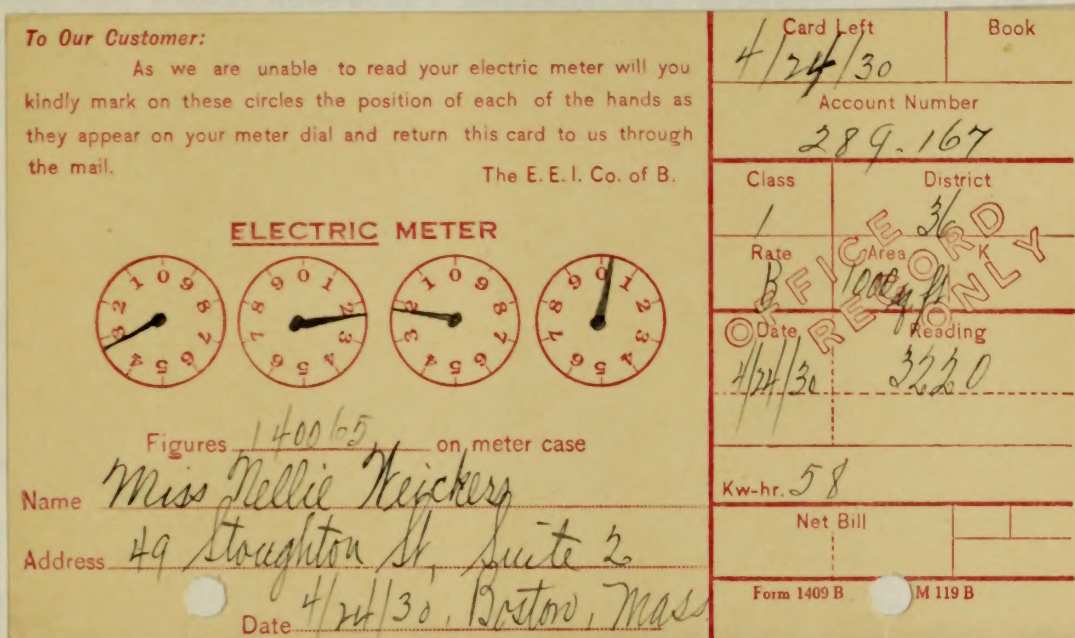 To Our Customer:
As we are unable to read your electric meter will you
kindly mark on these circles the position of each of the hands as
they appear on your meter dial and return this card to us through
the mail.
The E. E. I. Co. of B.
ELECTRIC METER
1 2 3 4 5 6 7 8 9 0
0 1 2 3 4 5 6 7 8 9
1 2 3 4 5 6 7 8 9 0
0 1 2 3 4 5 6 7 8 9
Figures 140065 on meter case
Name Miss Nellie
Address 49 Stoughton St, Suite 2
Date 4/24/30, Boston, Mass
Card Left
4/24/30
Book
Account Number
289-167
Class
1
District
36
Rate
B
Area
1000 sq ft
K
OFFICE RECORD ONLY
Date
4/24/30
Reading
3220
Kw-hr. 58
Net Bill
Form 1409 B
M 119 B